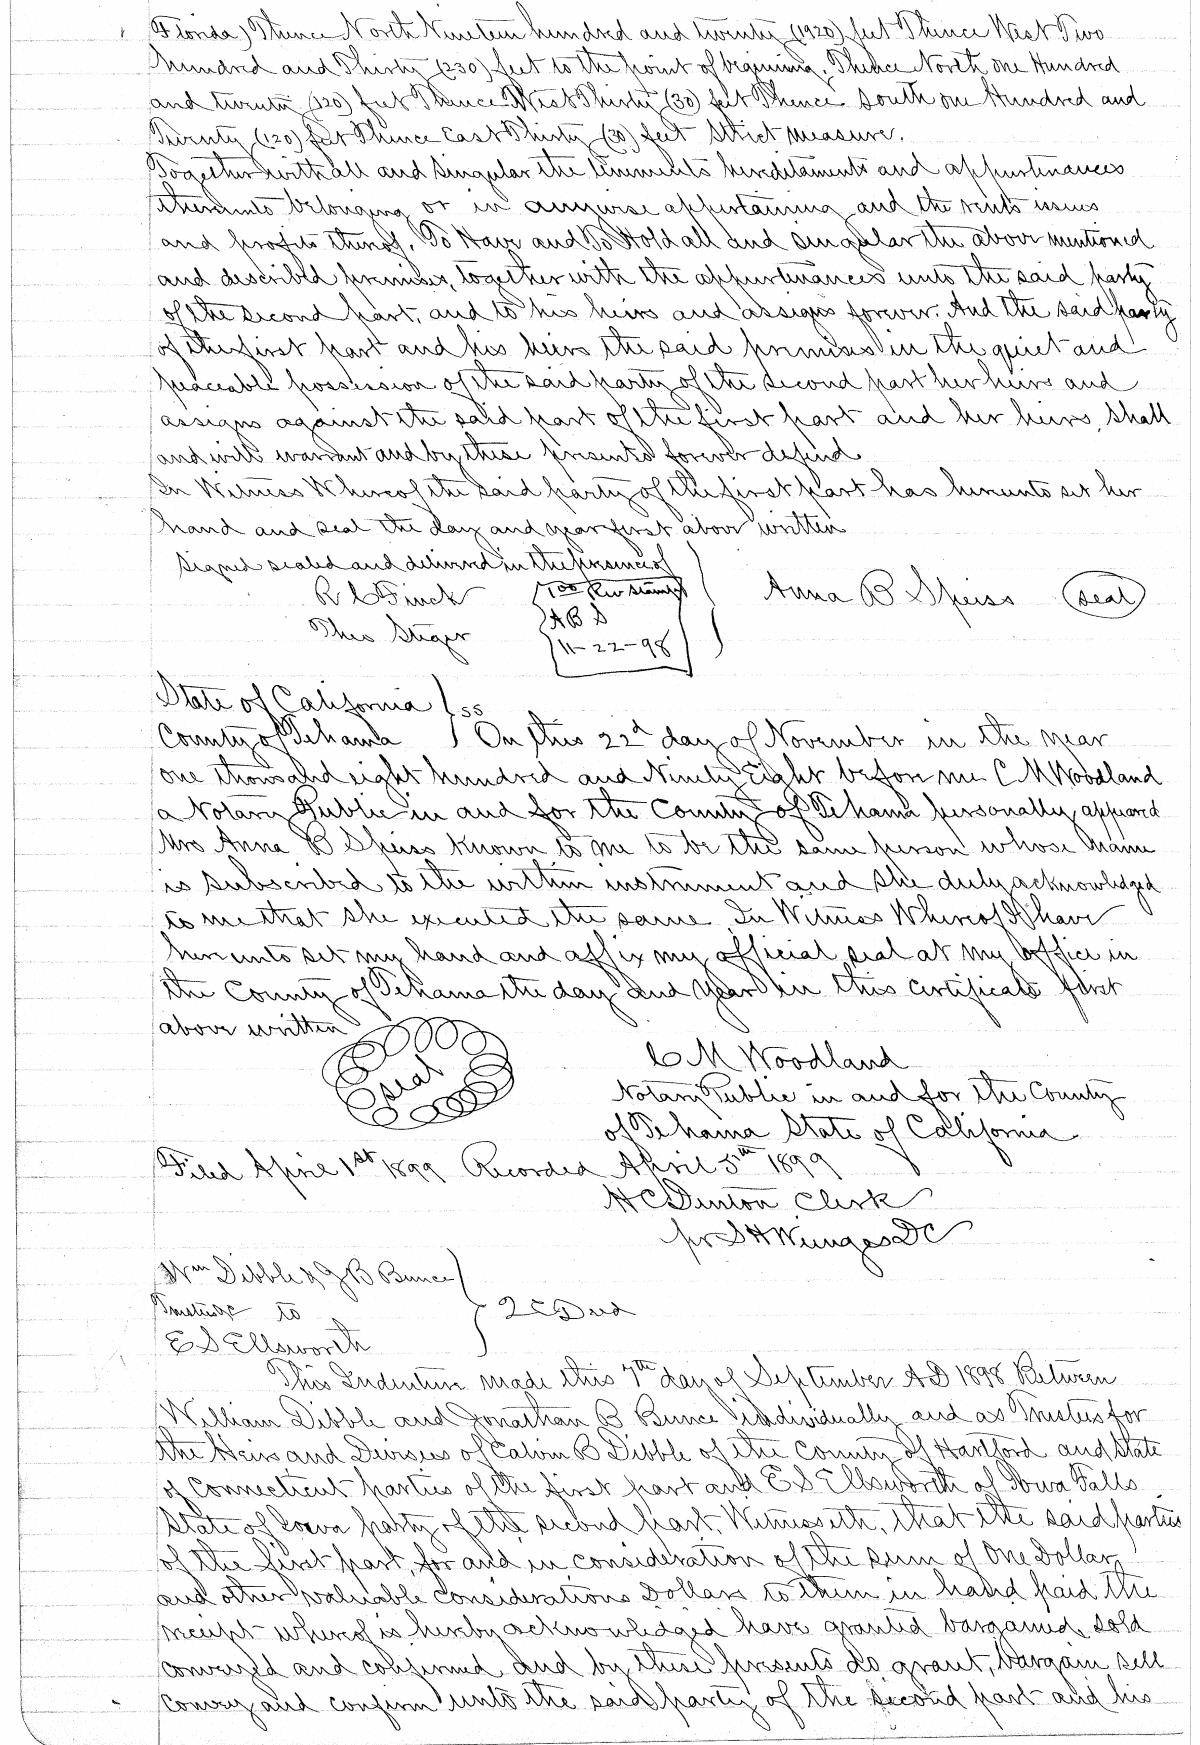 Florida) Thence North Nineteen hundred and twenty (1920) feet Thence West Two
hundred and Thirty (230) feet to the point of begining, Thence North one Hundred
and twenty (120) feet Thence West Thirty (30) feet Thence South one Hundred and
Twenty (120) feet Thence East Thirty (30) feet Strict measure.
Together with all and singular the teniments hereditaments and appurtenances
thereunto belonging or in anywise appertaining and the rents issues
and profits thereof, To Have and To Hold all and singular the above mentioned
and described premises, together with the appurtenances unto the said party
of the second part, and to his heirs and assigns forever. And the said party
of the first part and his heirs the said premises in the quiet and
peaceable possession of the said party of the second part her heirs and
assigns against the said part of the first part and her heirs, shall
and will warrant and by these presents forever defend.
In Witness Whereof the said party of the first part has hereunto set her
hand and seal the day and year first above written
Signed sealed and delivered in the presence of
R C Finck 100 Rev Stamps Anna B Speiss Seal
Theo Stiger A B S
11-22-98
State of California ) ss
County of Tehama ) On this 22d day of November in the year
one thousand eight hundred and Ninety Eight before me C M Woodland
a Notary Public in and for the County of Tehama personally appeared
Mrs Anna B Speiss Known to me to be the same person whose name
is subscribed to the within instrument and she duly acknowledged
to me that she executed the same. In Witness Whereof I have
hereunto set my hand and affix my official seal at my office in
the County of Tehama the day and year in this certificate first
above written
Seal
C M Woodland
Notary Public in and for the County
of Tehama State of California
Filed April 1st 1899 Recorded April 5th 1899
H C Denton Clerk
pr S H DC
Wm Dibble & J B Bunce
to
2 C Deed
E S Ellsworth
This Indenture made this 7th day of September A D 1898 Between
William Dibble and Jonathan B Bunce individually and as Trustees for
the Heirs and Devisees of Calvin B Dibble of the County of Hartford and State
of Connecticut parties of the first part and E S Ellsworth of Iowa Falls
State of Iowa party of the second part, Witnesseth, that the said parties
of the first part, for and in consideration of the sum of One Dollar
and other valuable considerations Dollars to them in hand paid the
receipt whereof is hereby acknowledged have granted bargained, sold
conveyed and confirmed and by these presents do grant, bargain sell
convey and confirm unto the said party of the second part and his